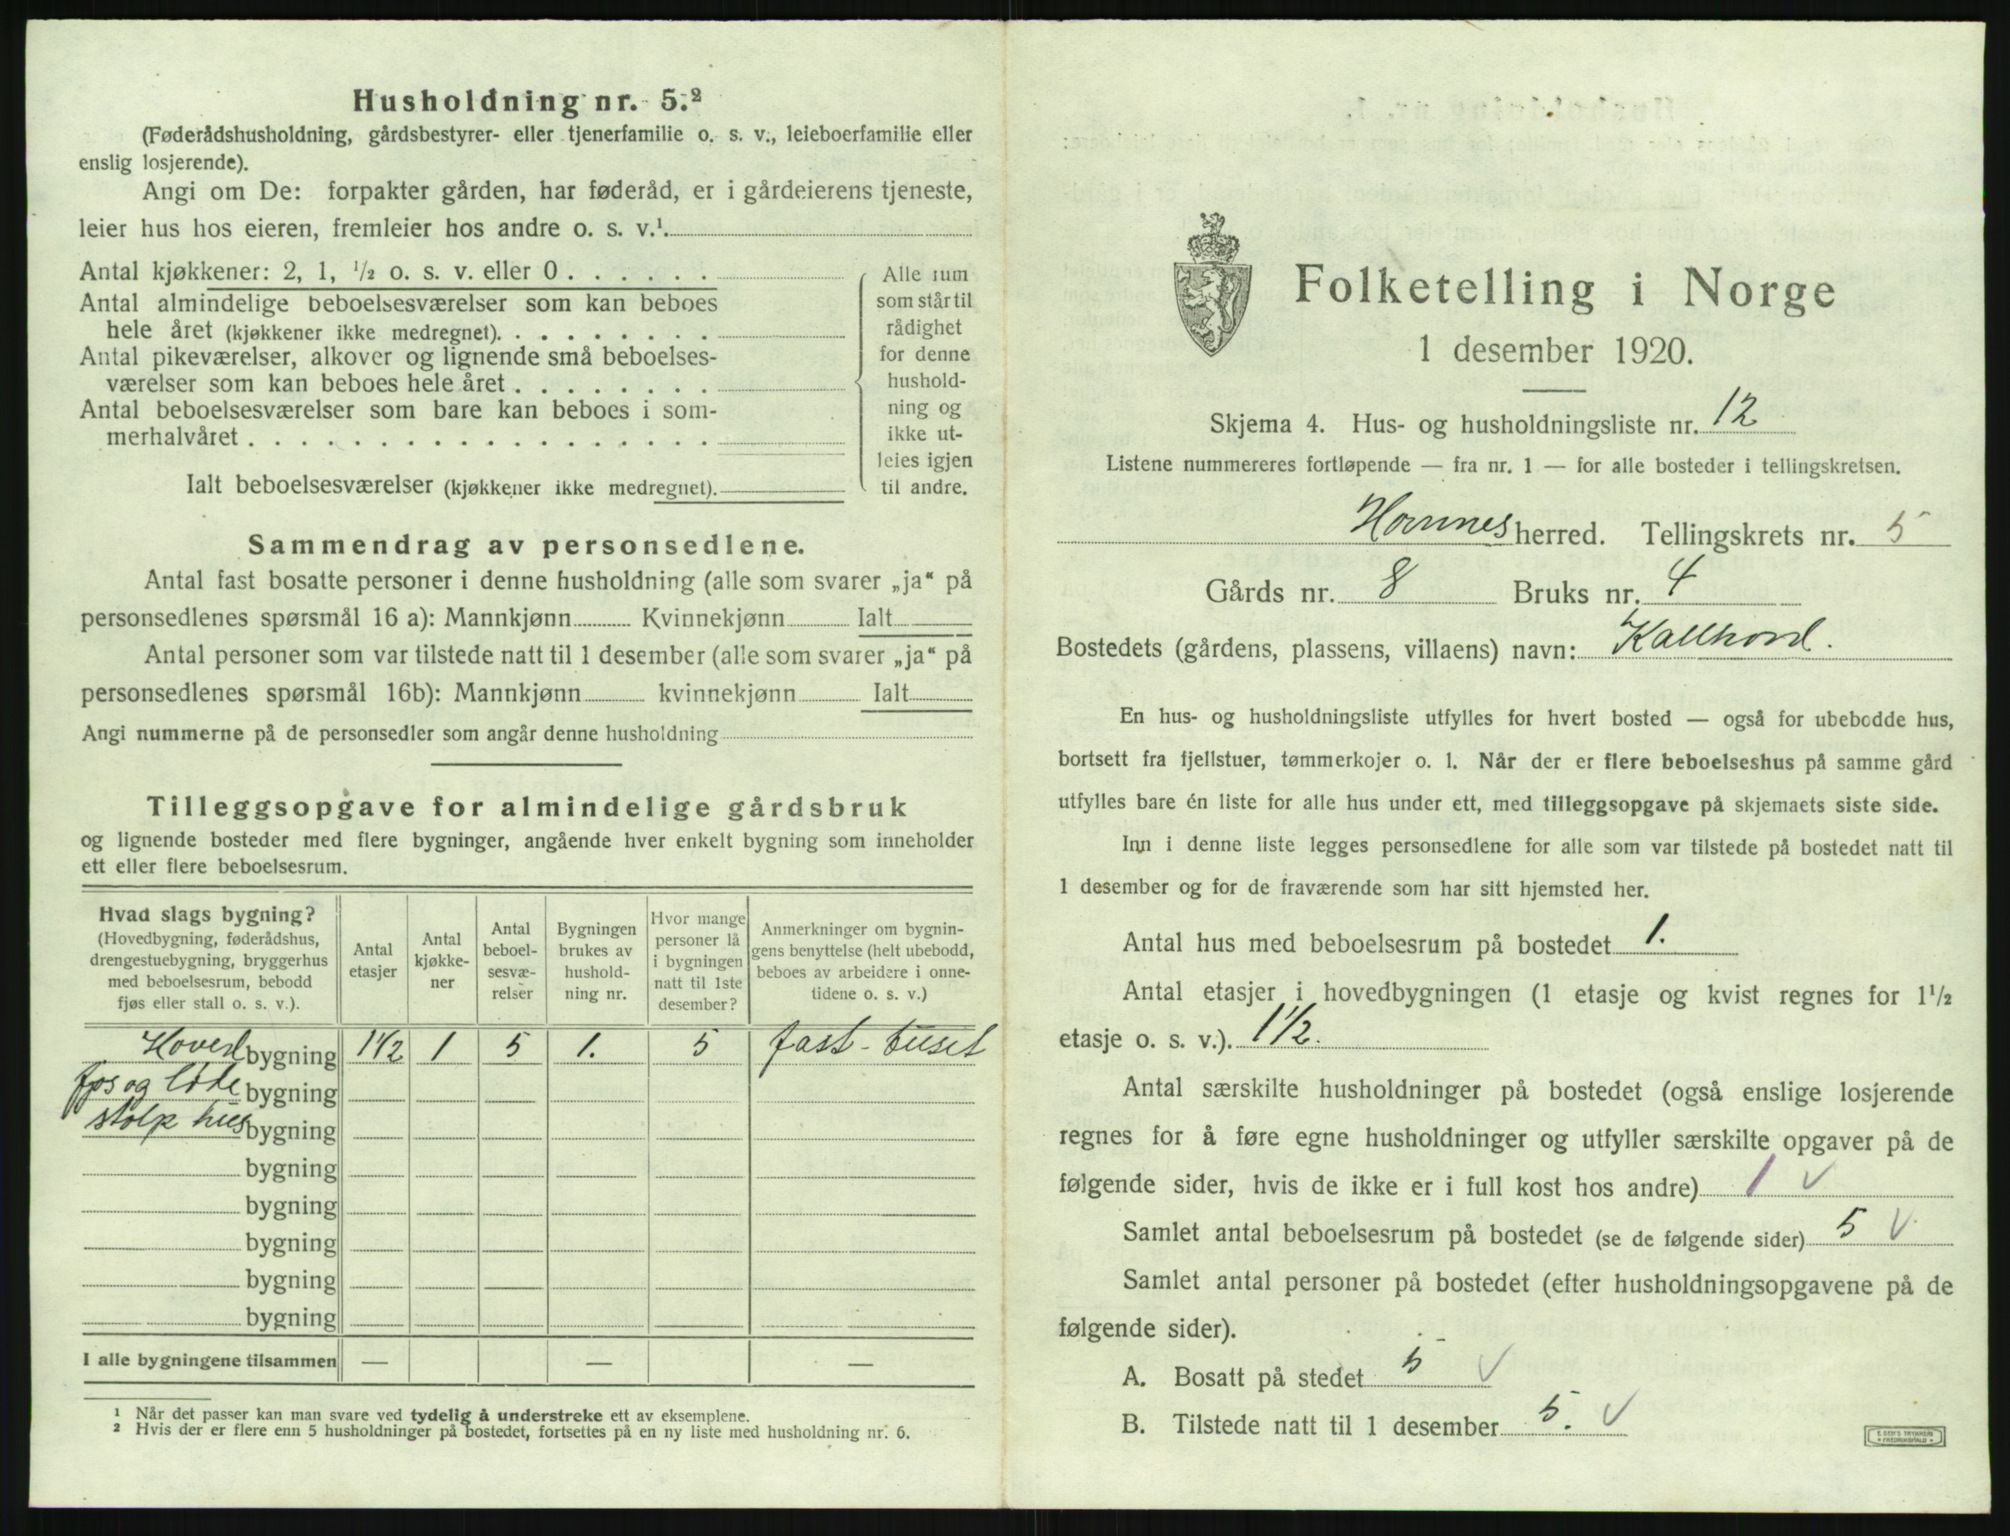 Husholdning nr. 5.²
(Føderådshusholdning, gårdsbestyrer- eller tjenerfamilie o. s. v., leieboerfamilie eller
enslig losjerende).
Angi om De: forpakter gården, har føderåd, er i gårdeierens tjeneste,
leier hus hos eieren, fremleier hos andre o. s. v.¹
Antal kjøkkener: 2, 1, ½ o. s. v. eller 0 . . . . . .
Antal almindelige beboelsesværelser som kan beboes
hele året (kjøkkener ikke medregnet). . . . . . . . .
Antal pikeværelser, alkover og lignende små beboelses-
værelser som kan beboes hele året . . . . . . . .
Antal beboelsesværelser som bare kan beboes i som-
merhalvåret . . . . . . . . . . . . . . . . . .
Ialt beboelsesværelser (kjøkkener ikke medregnet).
Alle rum
som står til
rådighet
for denne
hushold-
ning og
ikke ut-
leies igjen
til andre.
Sammendrag av personsedlene.
Antal fast bosatte personer i denne husholdning (alle som svarer „ja“ på
personsedlenes spørsmål 16 a): Mannkjønn Kvinnekjønn Ialt
Antal personer som var tilstede natt til 1 desember (alle som svarer „ja“ på
personsedlenes spørsmål 16b): Mannkjønn kvinnekjønn Ialt
Angi nummerne på de personsedler som angår denne husholdning
Tilleggsopgave for almindelige gårdsbruk
og lignende bosteder med flere bygninger, angående hver enkelt bygning som inneholder
ett eller flere beboelsesrum.
Hvad slags bygning?
(Hovedbygning, føderådshus,
drengestuebygning, bryggerhus
med beboelsesrum, bebodd
fjøs eller stall o. s. v.).
Antal
etasjer
Antal
kjøkke-
ner
Antal
beboel-
sesvæ-
relser
Bygningen
brukes av
hushold-
ning nr.
Hvor mange
personer lå
i bygningen
natt til 1ste
desember?
Anmerkninger om bygnin-
gens benyttelse (helt ubebodd,
beboes av arbeidere i onne-
tidene o. s. v.)
Hoved bygning 1½ 1 5 1. 5 fast
fjøs og løde bygning
stolp hus bygning
bygning
bygning
bygning
bygning
bygning
I alle bygningene tilsammen — — —
¹ Når det passer kan man svare ved tydelig å understreke ett av eksemplene.
² Hvis der er flere enn 5 husholdninger på bostedet, fortsettes på en ny liste med husholdning nr. 6.
Folketelling i Norge
1 desember 1920.
Skjema 4. Hus- og husholdningsliste nr. 12
Listene nummereres fortløpende — fra nr. 1 — for alle bosteder i tellingskretsen.
Hornnes herred. Tellingskrets nr. 5
Gårds nr. 8 Bruks nr. 4
Bostedets (gårdens, plassens, villaens) navn: Kallhovd.
En hus- og husholdningsliste utfylles for hvert bosted — også for ubebodde hus,
bortsett fra fjellstuer, tømmerkojer o. l. Når der er flere beboelseshus på samme gård
utfylles bare én liste for alle hus under ett, med tilleggsopgave på skjemaets siste side.
Inn i denne liste legges personsedlene for alle som var tilstede på bostedet natt til
1 desember og for de fraværende som har sitt hjemsted her.
Antal hus med beboelsesrum på bostedet 1.
Antal etasjer i hovedbygningen (1 etasje og kvist regnes for 1½
etasje o. s. v.). 1½.
Antal særskilte husholdninger på bostedet (også enslige losjerende
regnes for å føre egne husholdninger og utfyller særskilte opgaver på de
følgende sider, hvis de ikke er i full kost hos andre) 1 ✓
Samlet antal beboelsesrum på bostedet (se de følgende sider) 5 ✓
Samlet antal personer på bostedet (efter husholdningsopgavene på de
følgende sider).
A. Bosatt på stedet 5 ✓
B. Tilstede natt til 1 desember 5. ✓